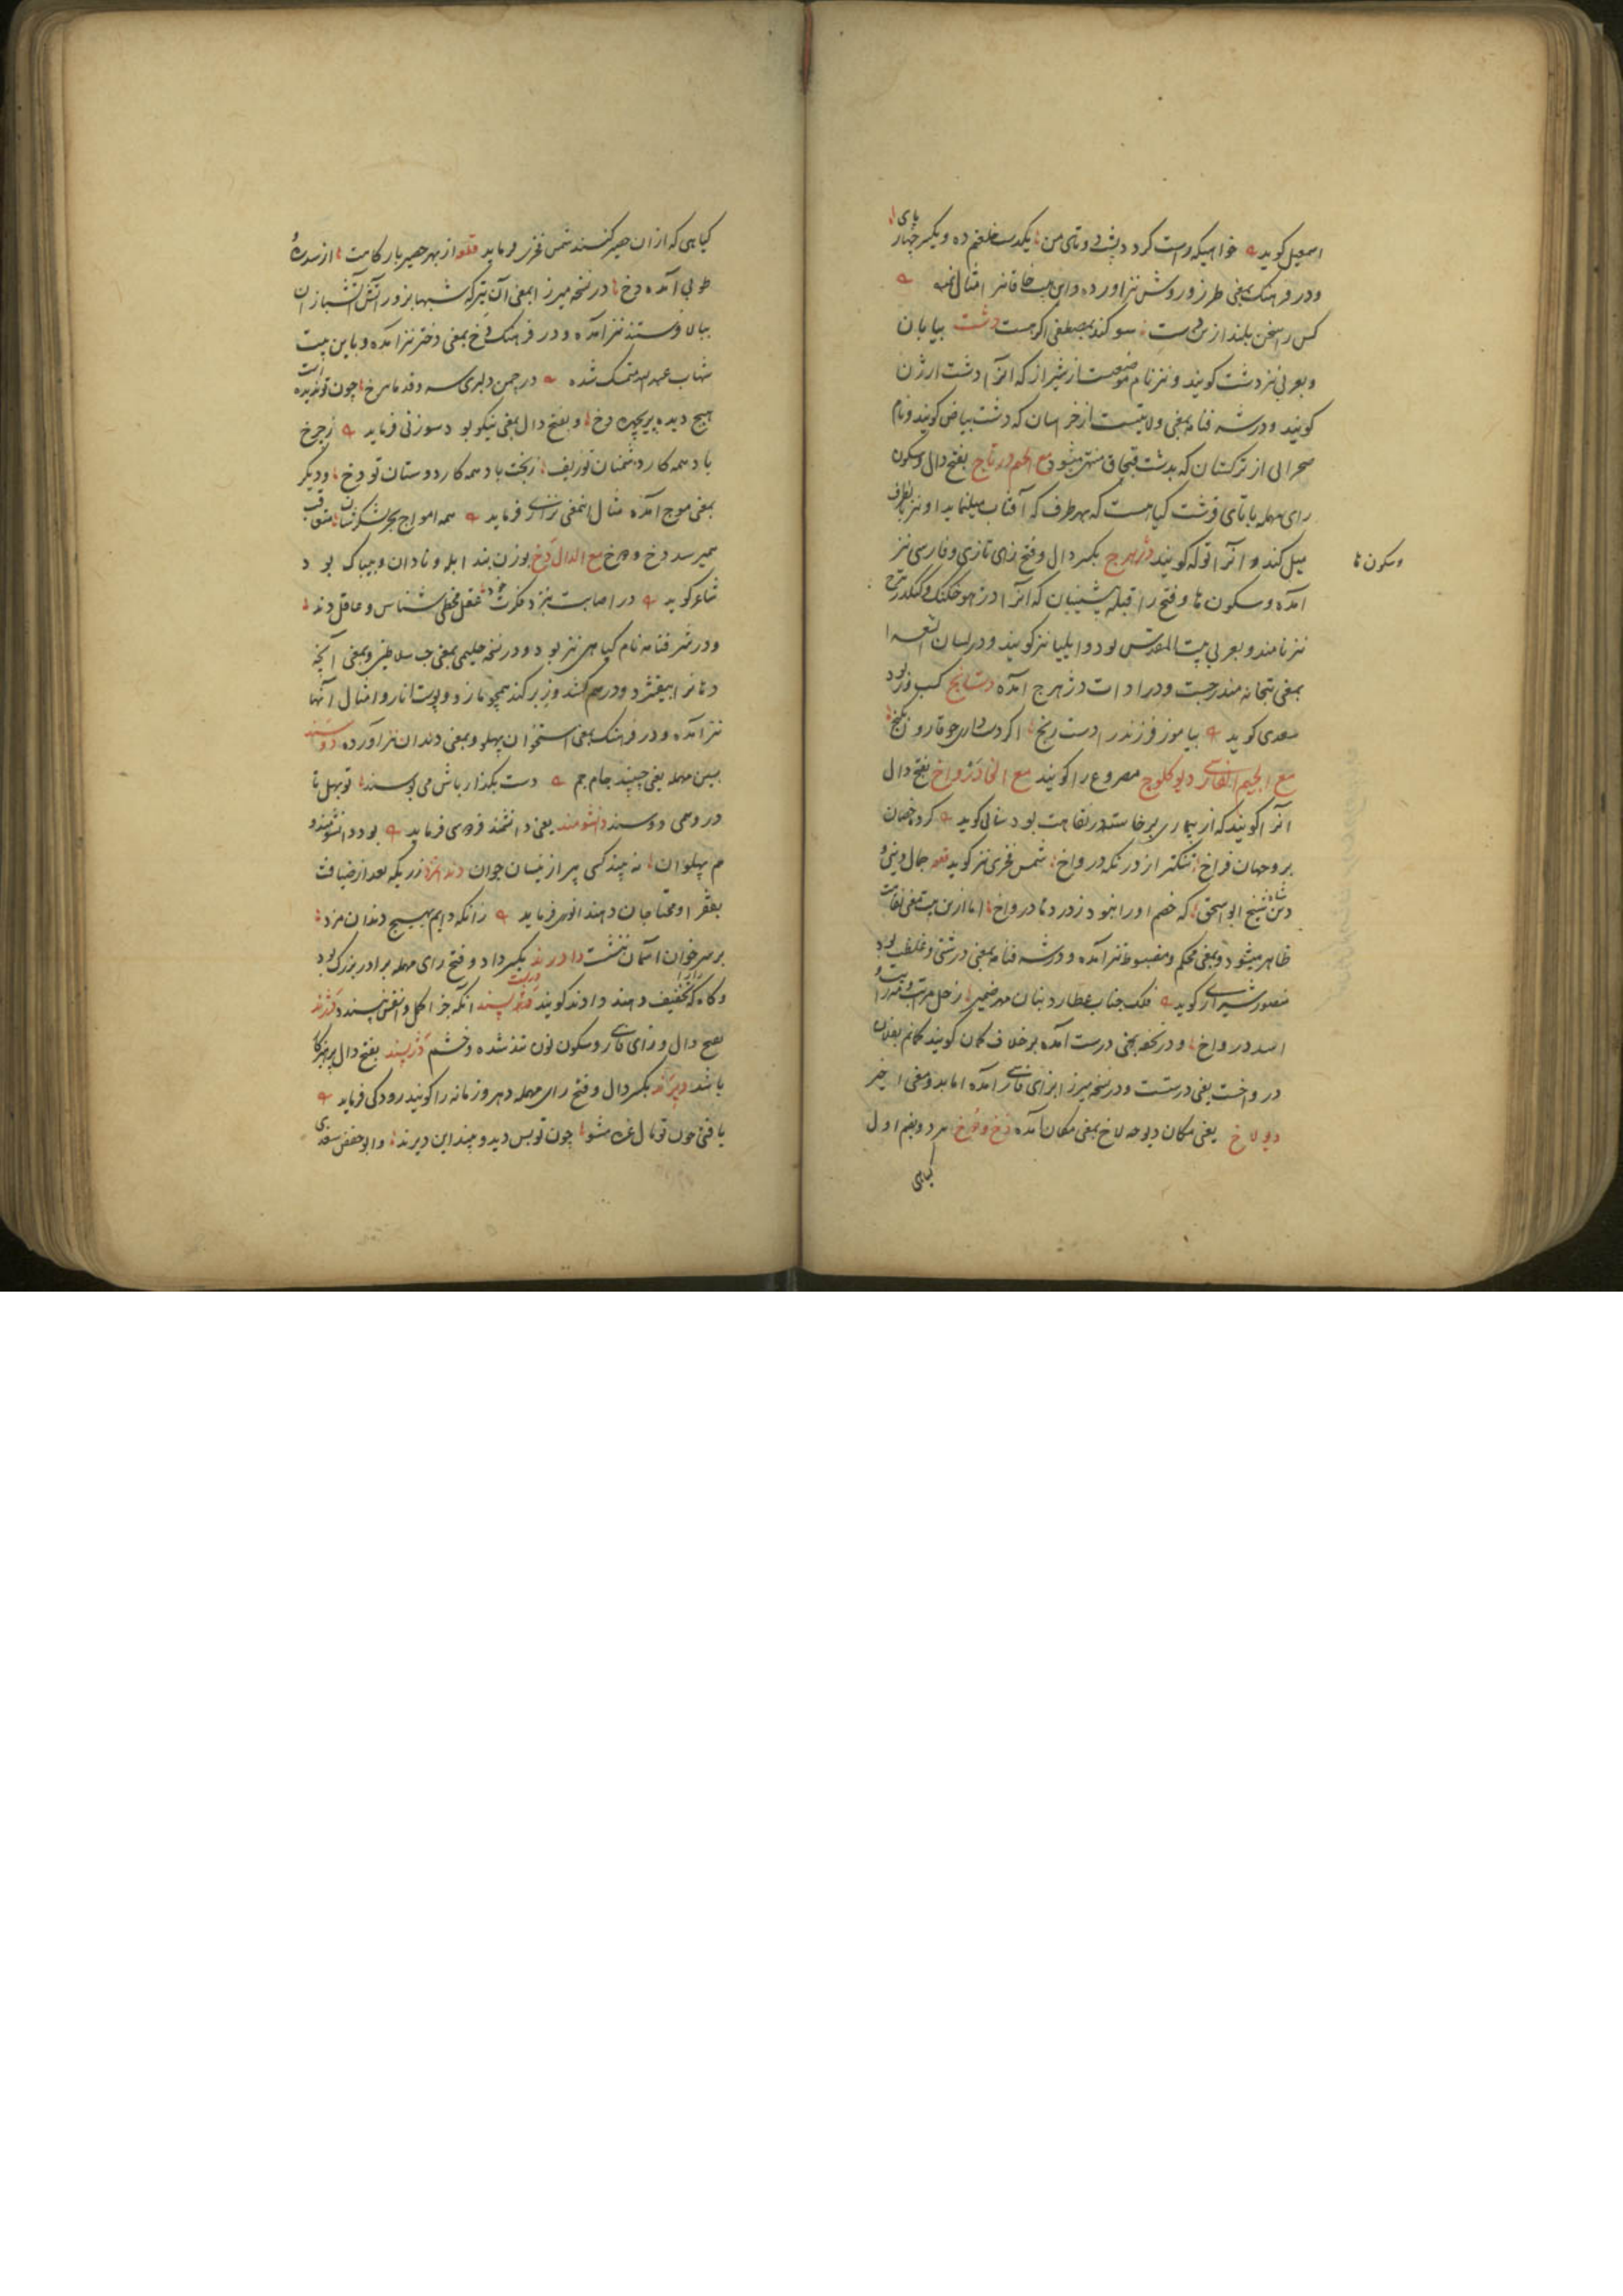 اسمعیل کوید خواهیکه راست کردد پشت دوتای من یکدست خلعتم ده و یکسر چهارپای
ودر فرهنک بمعنی طرز و روش نیز اورده و این بیت خاقانیرا مثال نمیه
کس را سخن بلند ازین دست سوکند بمصطفی اکر هست دشت بیابان
و بعربی نیز دشت کویند و نیز نام موضعیست از شیراز که انرا دشت ارژن
کویند و در شرفنامه بمعنی ولایتیست از خراسان که دشت بیاض کویند و نام
صحرایی از ترکستان که بدشت قبچاق مشهور میشود مع الجیم درتاج بفتح دال و سکون
رای مهمله با تای قرشت کیاهست که بهر طرف که آفتاب میل نماید او نیز بطرف
میل کند و آنرا توله کویند دژهرج بکسر دال و فتح زای تازی و فارسی نیز
وسکون ها
آمده و سکون ها و فتح را قبله پیشینیان که آنرا دژهوخت کنک و کنک دژهرج
نیز نامند و بعربی بیت المقدس بود و ایلیا نیز کویند و در لسان الشعرا
بمعنی بتخانه مندرجست و در ادات دژهرج آمده دستانج کسب و زور بود
سعدی کوید بیاموز فرزند را دست رنج اکر دست داری چو قارون بکنج
مع الجیم الفارسی دیو کلوچ مصروع را کویند مع الخا درواخ بفتح دال
آنرا کویند که از بیماری برخاسته در نقاهت بود سنائی کوید کرد خصمان
بر و جهان فراخ تنکتر از درنکه درواخ شمس فخری نیز کوید جمال دینی و
دین شاه شیخ ابو اسحق که خصم او را نبود ز درد ما درواخ اما ازین بیت معنی نقاهت
ظاهر میشود و بمعنی محکم و مضبوط نیز آمده و در شرفنامه بمعنی درشتی و غلظت بود
منصور شیرازی کوید فلک جناب عطارد بنان مهر ضمیر زحل مرتبت و
اسد درواخ و در نسخه بمعنی درست آمده بر خلاف کمان کویند کمانم بفلان
درواخست یعنی درستست و در نسخه میرزا بزای فارسی آمده اما بدو معنی اخیر
دیولاخ یعنی مکان دیو چه لاخ بمعنی مکان آمده دخ و دوخ هر دو بضم اول
کیاهی
کیاهی که از ان حصیر کنند شمس فخری فرماید از بهر حصیر بارکاهت از سدره و
طوبی آمده دخ در نسخه میرزا بمعنی آن تیر که شبها بزور آتش آتشبازان
ببالا فرستند نیز آمده و در فرهنک دخ بمعنی دختر نیز آمده و باین بیت
شهاب عبد الله متمسک شده در چمن دلبری سرو قد ماهرخ چون تو ندیده است
هیچ دیده پریچهره دخ و بفتح دال بمعنی نیکو بود سوزنی فرماید ز چرخ
باد همه کار دشمنان تو زیف ز بخت باد همه کار دوستان تو دخ و دیگر
بمعنی موج آمده مثال اینمعنی نزاری فرماید همه امواج بحر لشکرشان متعاقب
همیرسد دخ و دخ مع الدال دند بوزن بند ابله و نادان و بیباک بود
شاعر کوید در اصابت بنزد فکرت خود عقل مخطی شناس و عاقل دند
و در شرفنامه نام کیاهی نیز بود و در نسخه حلیمی بمعنی حب سلاطین و بمعنی آنچه
دهانرا بیفشرد و درهم کشد و زبر کند همچو مازو و پوست انار و امثال آنها
نیز آمده و در فرهنک بمعنی استخوان پهلو و بمعنی دندان نیز آورده دوسند
بسین مهمله یعنی چسپند جام جم دست بکذار پاش می بوسند تو بهل تا
در وحی دوسند دانشومند یعنی دانشمند فردوسی فرماید بود دانشومند و
هم پهلوان نه چندکسی پیر از ینسان جوان دندانمزد زریکه بعد از ضیافت
بفقرا و محتاجان دهند انوری فرماید زانکه دایم بهیج دندان مزد
بر سر خوان آسمان ننشست دادرند بکسر داد و فتح رای مهمله برادر بزرک بود
و کاه که تخفیف دهند دادند کویند پسند آنکه جز اکل و نقش نپسندد دژند
بفتح دال و زای فارسی و سکون نون تند شده و خشم دژپسند بفتح دال پرهیزکار
باشد دیرند بکسر دال و فتح رای مهمله دهر و زمانه را کویند رودکی فرماید
یافتی چون تو مال غره مشو چون تو بس دید و بیند این دیرند و ابو حفص سغدی